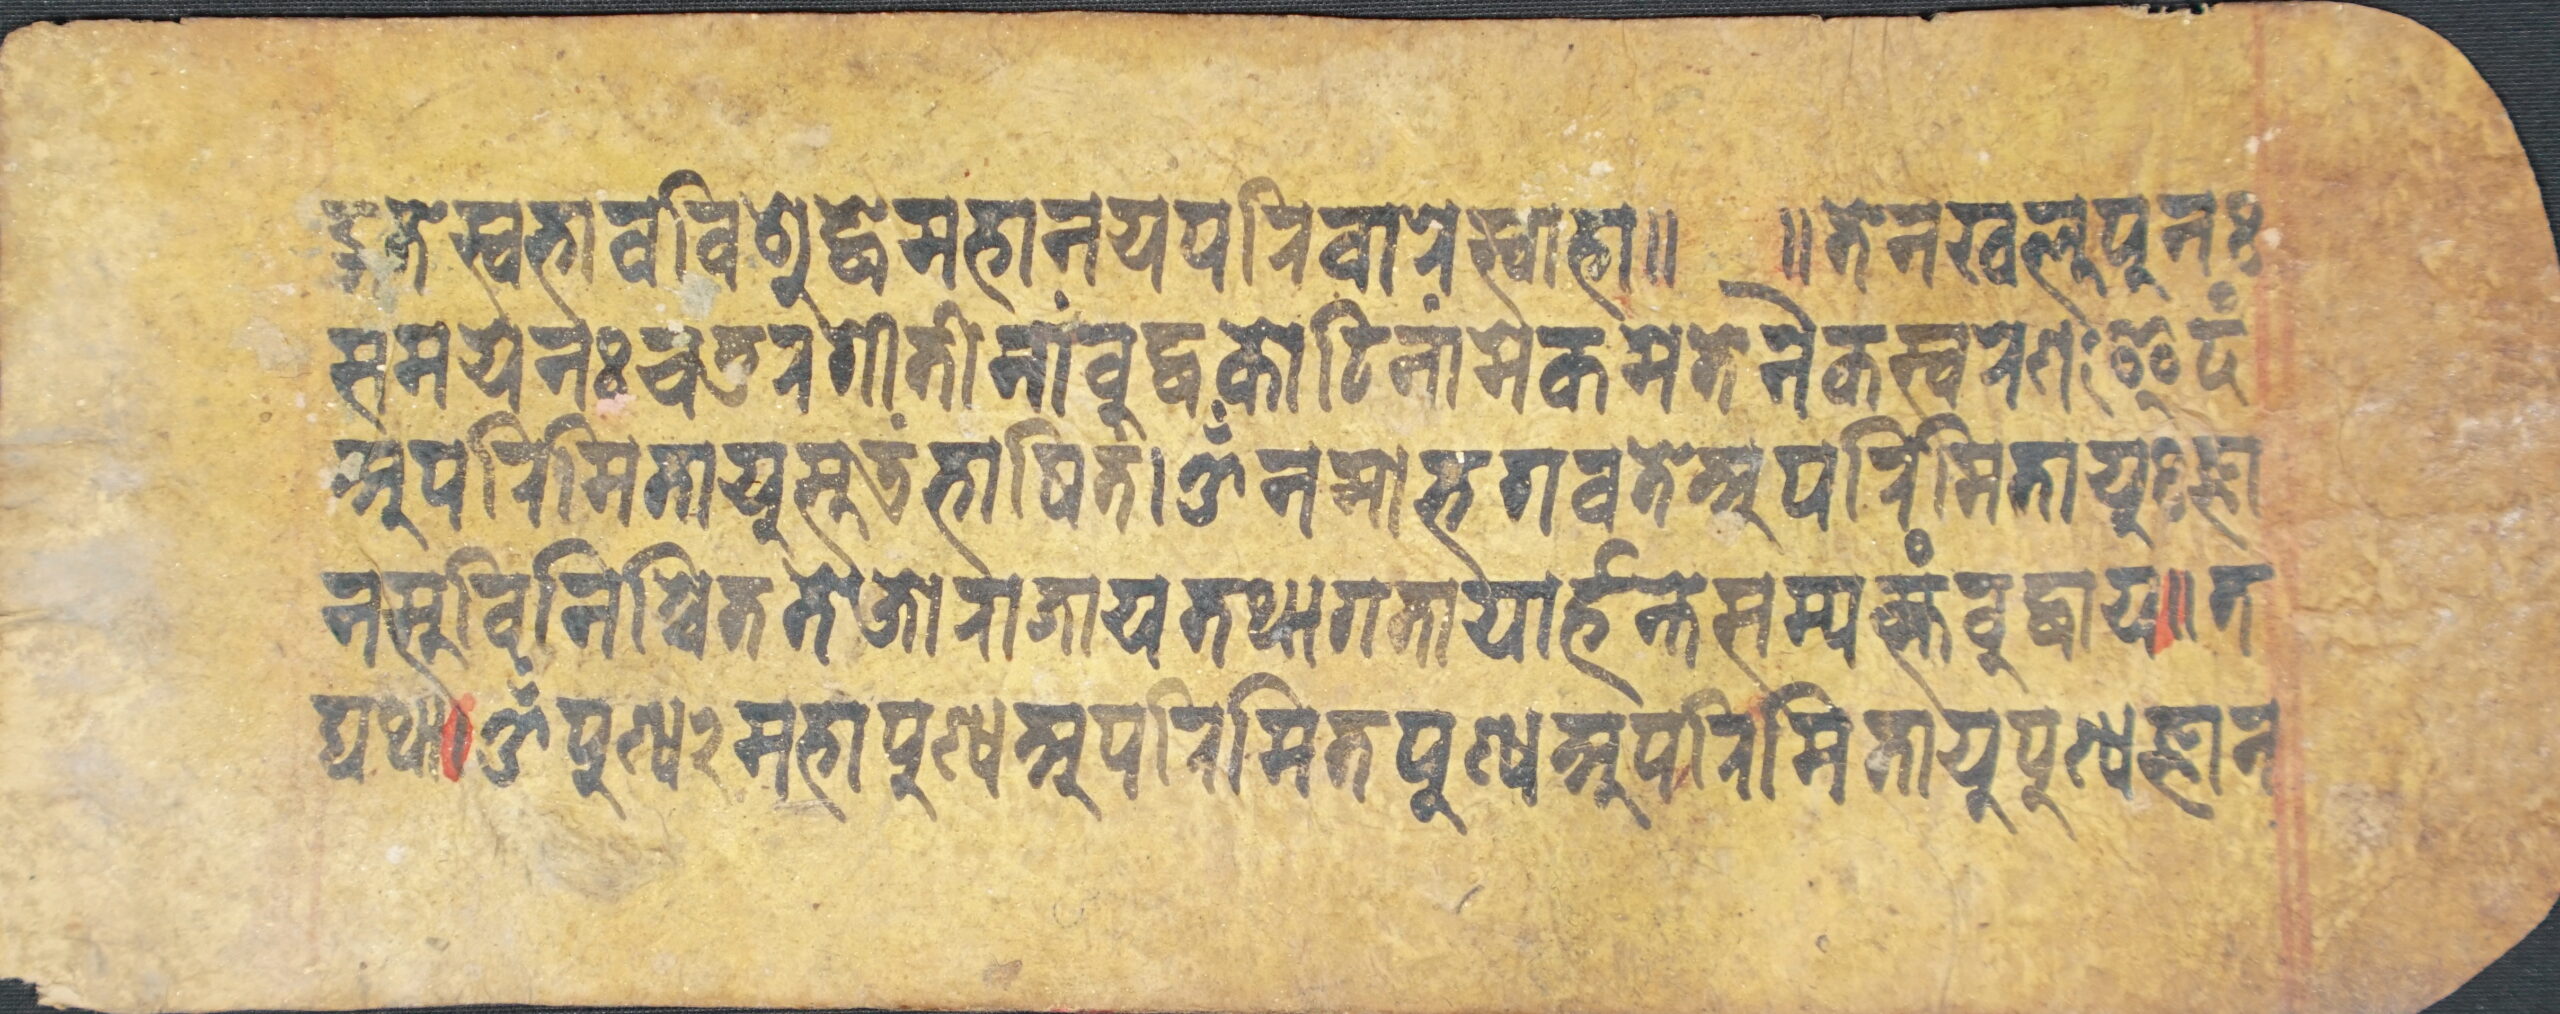 द्गते स्वभावविशुद्धे महानयपरिवारे स्वाहा॥ ॥तेन खलु पुनः
समयेनः चतुरशीतीनां बुद्धकोटिनां मेकमतेनैकस्वरेणः इदं
अपरिमितायुसुतं भाषितं। ॐ नमो भगवते अपरिमितायुःज्ञा
नसुविनिश्चिततेजोराजाय तथागतायार्हन्ते सम्यक्संबुद्धाय॥ त
द्यथा। ॐ पुण्य२ महापुण्य अपरिमितपुण्य अपरिमितायुपुण्यज्ञान